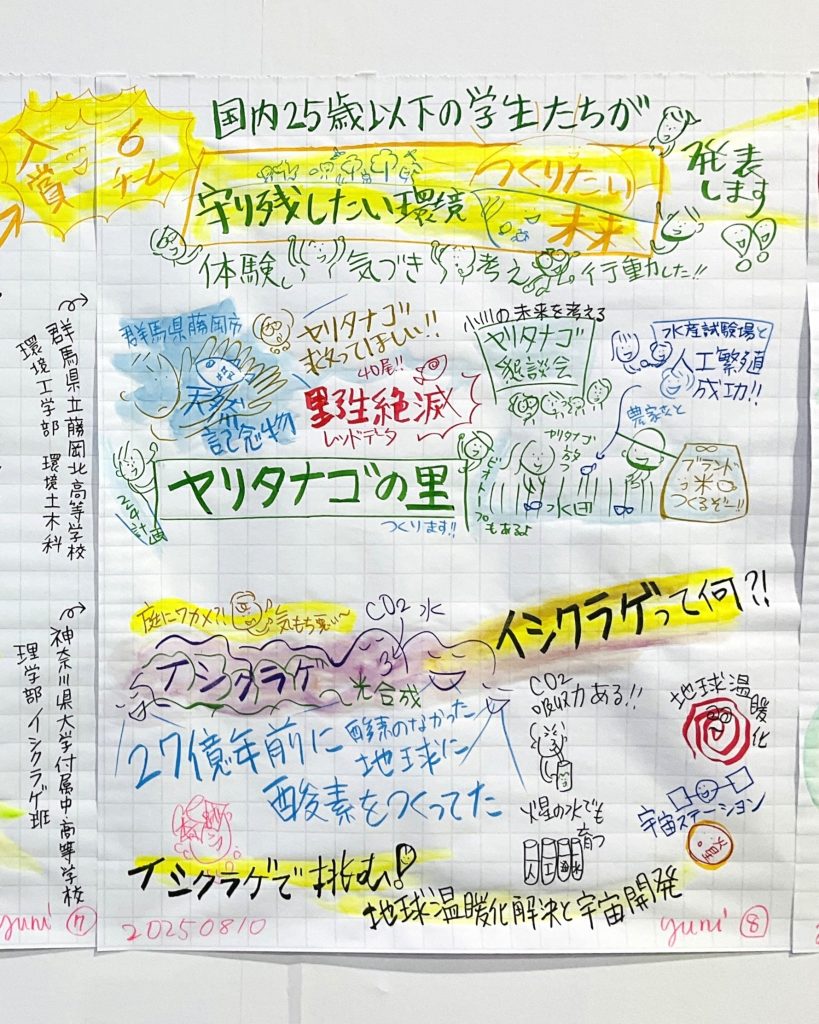 入賞
6
チーム
国内25歳以下の学生たちが
守り残したい環境
つくりたい
未来
発表
します
体験 気づき 考え 行動した!!
群馬県立藤岡北高等学校
環境工学部 環境土木科
群馬県藤岡市
天然
記念物
ヤリタナゴ
救ってほしい!!
40尾!!
野生絶滅
レッドデータ
小川の未来を考える
ヤリタナゴ
懇談会
水産試験場と
人工繁殖
成功!!
農家さんと
ヤリタナゴ
放つ
ヤリタナゴの里
つくります!!
ビオトープ
もあるよ
ブランド
米
つくるぞー!!
神奈川県大学付属中・高等学校
理学部 イシクラゲ班
庭にワカメ?!
気もち悪い〜
CO2 水
イシクラゲって何?!
イシクラゲ
光合成
27億年前に
酸素のなかった
地球に
酸素をつくってた
CO2
吸収力ある!!
地球温暖化
火星の水でも
育つ
人工海水
宇宙ステーション
火星
イシクラゲで挑む!
地球温暖化解決と宇宙開発
yuni 7
20250810
yuni 8